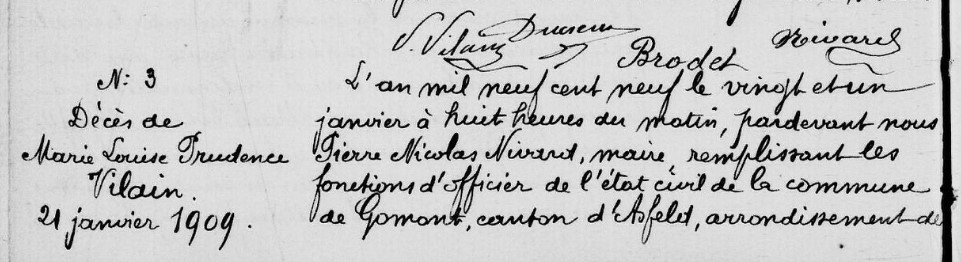 V. Vilain
Brodet
Nivard
N: 3
Décès de
Marie Louise Prudence
Vilain.
21 janvier 1909.
L'an mil neuf cent neuf le vingt et un
janvier à huit heures du matin, pardevant nous
Pierre Nicolas Nivard, maire, remplissant les
fonctions d'officier de l'état civil de la commune
de Gomont, canton d'Asfeld, arrondissement de